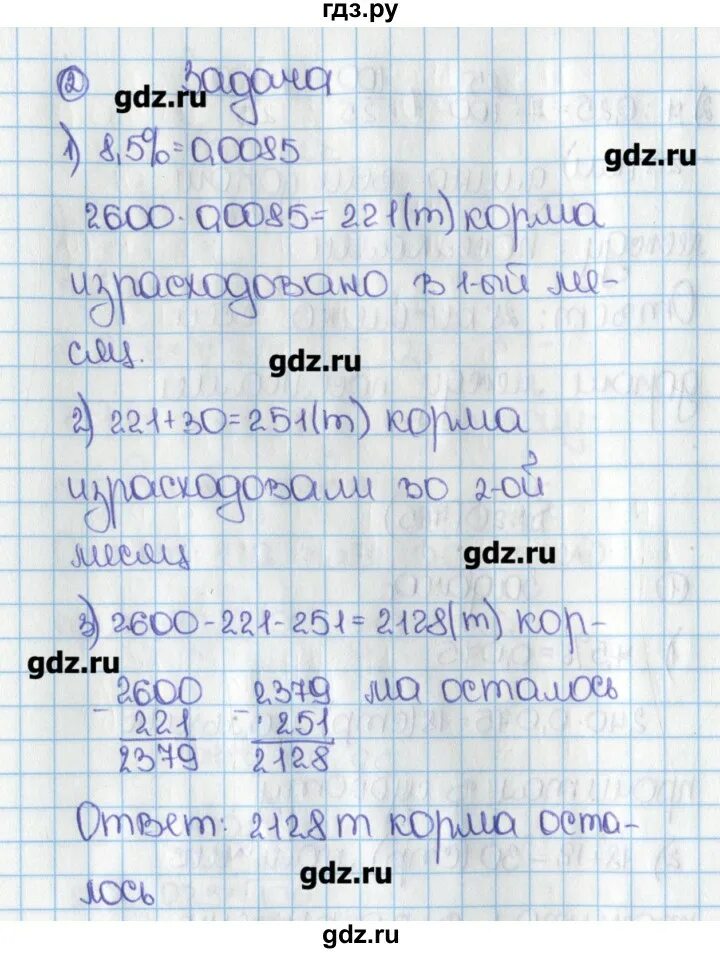 гдз.ру
② Задача
gdz.ru
1) 8,5% = 0,0085
gdz.ru
2600 · 0,0085 = 221(т) корма
израсходовано в 1-ый ме-
сяц.
gdz.ru
2) 221 + 30 = 251(т) корма
израсходовали во 2-ой
месяц
gdz.ru
3) 2600 - 221 - 251 = 2128(т) кор-
gdz.ru
2600 2379 ма осталось
- 221 - 251
2379 2128
Ответ: 2128 т корма оста-
gdz.ru
лось
gdz.ru